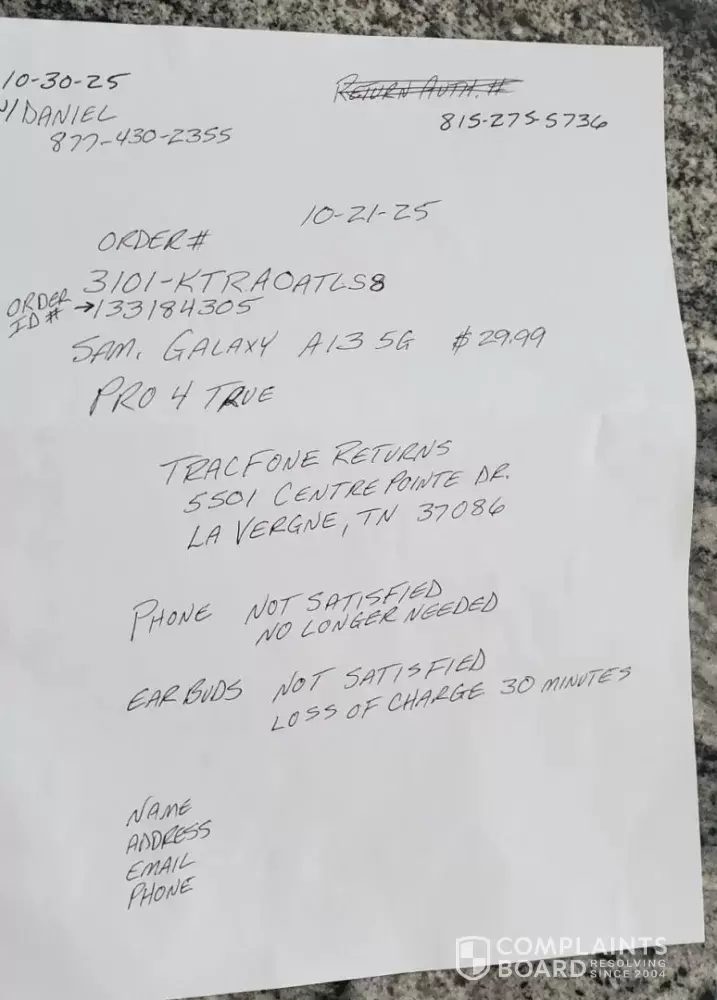 10-30-25
W/DANIEL
877-430-2355
RETURN AUTH. #
815-275-5736
10-21-25
ORDER #
3101-KTRAOATLS8
ORDER ID # →133184305
SAM. GALAXY A13 5G $29.99
PRO 4 TRUE
TRACFONE RETURNS
5501 CENTRE POINTE DR.
LA VERGNE, TN 37086
PHONE NOT SATISFIED
NO LONGER NEEDED
EAR BUDS NOT SATISFIED
LOSS OF CHARGE 30 MINUTES
NAME
ADDRESS
EMAIL
PHONE
COMPLAINTS
BOARD RESOLVING
SINCE 2004